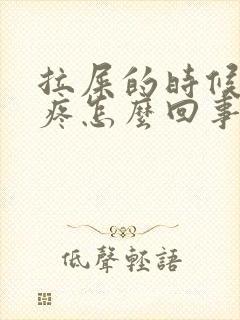 拉屎的時候
疼怎麼回事
低聲輕語